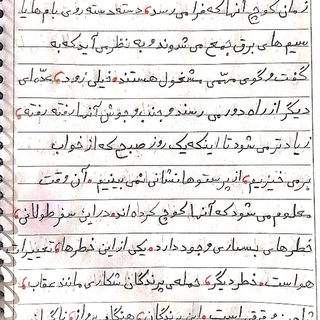 زمان کوچ آنها که فرا می رسد، دسته دسته روی بام ها یا
سیم های برق جمع می شوند و به نظر می آید که به
گفت و گوی مهمّی مشغول هستند. خیلی زود، عدّه ای
دیگر از راه دور می رسند و جنب و جوش آنها رفته رفته،
زیادتر می شود تا اینکه یک روز صبح که از خواب
بر می خیزیم، از پرستوها نشانی نمی بینیم. آن وقت
معلوم می شود که آنها کوچ کرده اند. در این سفر طولانی،
خطرهای بسیاری وجود دارد. یکی از این خطرها، تغییرات
هواست. خطر دیگر، حمله ی پرندگان شکاری مانند عقاب،
شاهین و قرقی است. این پرندگان، هنگام پرواز ناگهان